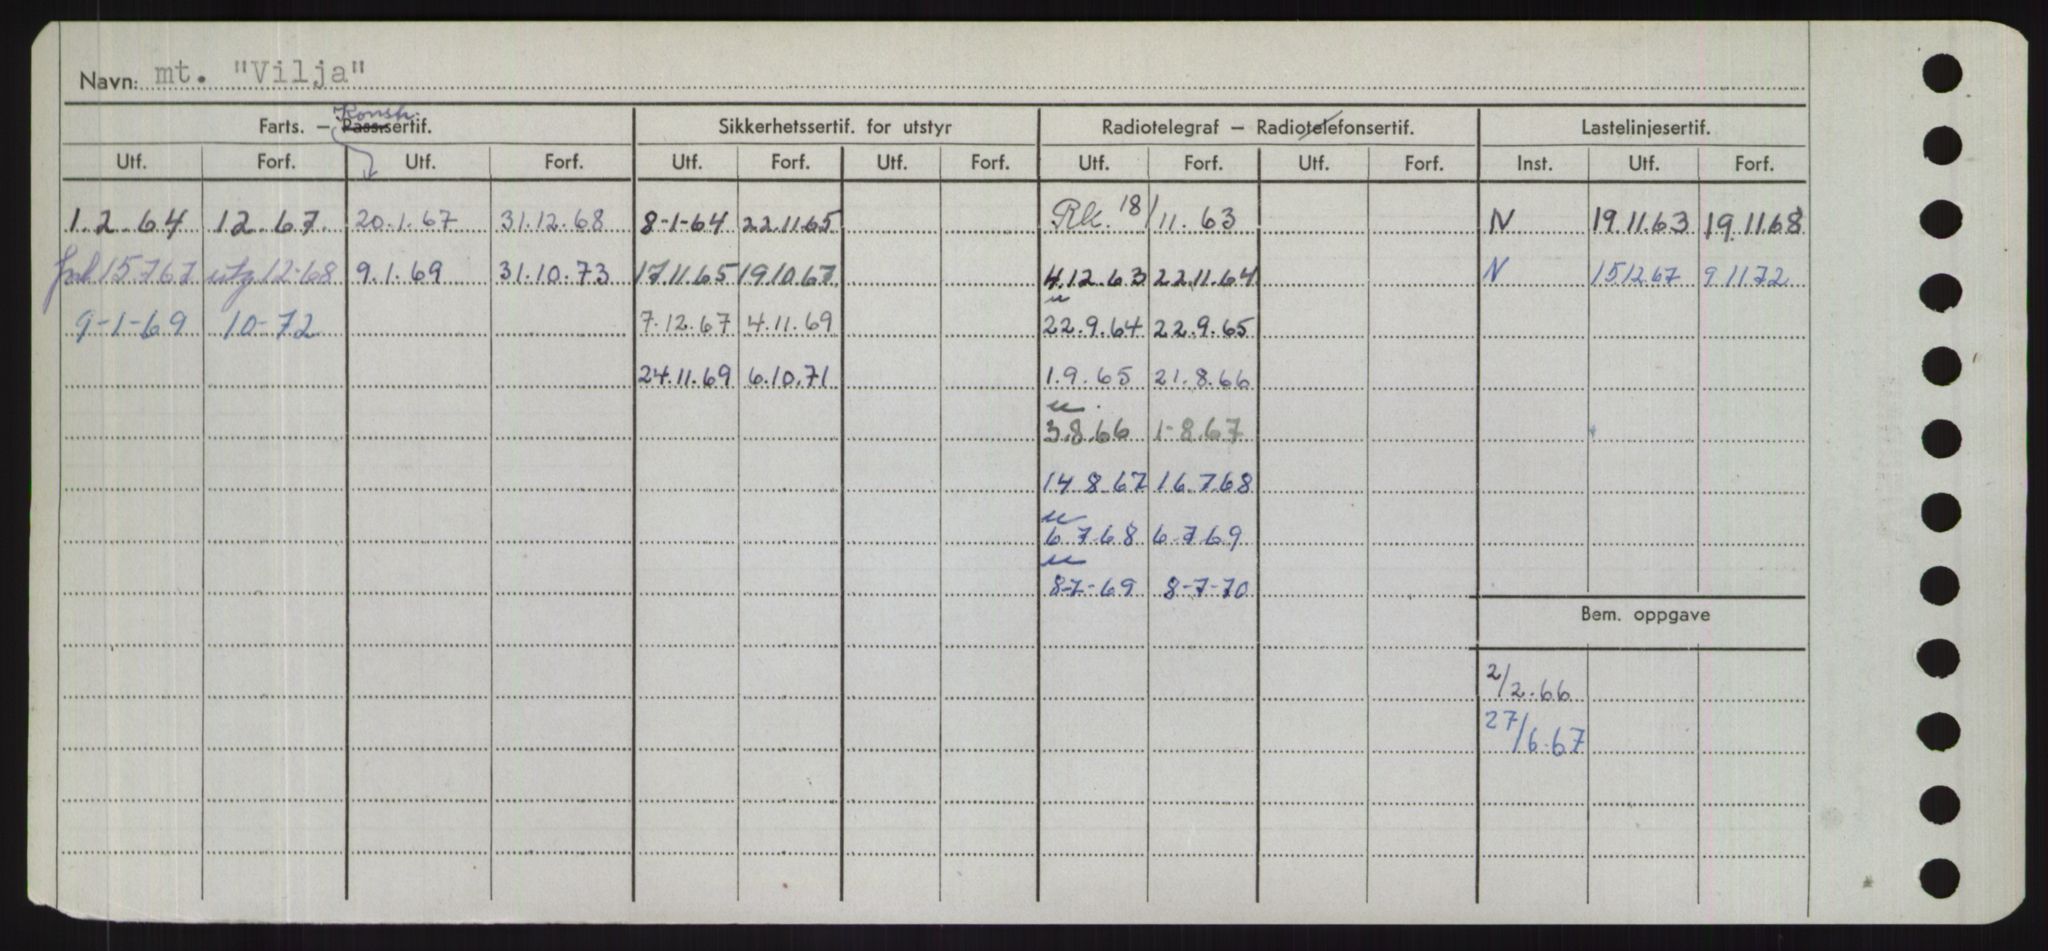 Navn: mt. "Vilja"
Konstr.
Farts. — Pass.sertif. Sikkerhetssertif. for utstyr Radiotelegraf — Radiotelefonsertif. Lastelinjesertif.
Utf. Forf. Utf. Forf. Utf. Forf. Utf. Forf. Utf. Forf. Utf. Forf. Inst. Utf. Forf.
1.2.64 12.67. 20.1.67 31.12.68 8-1-64 22.11.65 Rk. 18/11.63 N 19.11.63 19.11.68
15.7.67 utg 12-68 9.1.69 31.10.73 17.11.65 19.10.67 4.12.63 22.11.64 N 15.12.67 9.11.72
9-1-69 10-72 7.12.67 4.11.69 22.9.64 22.9.65
24.11.69 6.10.71 1.9.65 21.8.66
3.8.66 1-8.67
14.8.67 16.7.68
6.7.68 6.7.69
8-7-69 8-7-70
Bem. oppgave
2/2.66
27/6.67